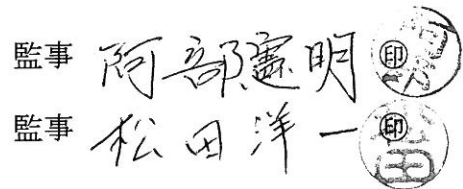 監事 阿部憲明 ㊞
監事 松田洋一 ㊞